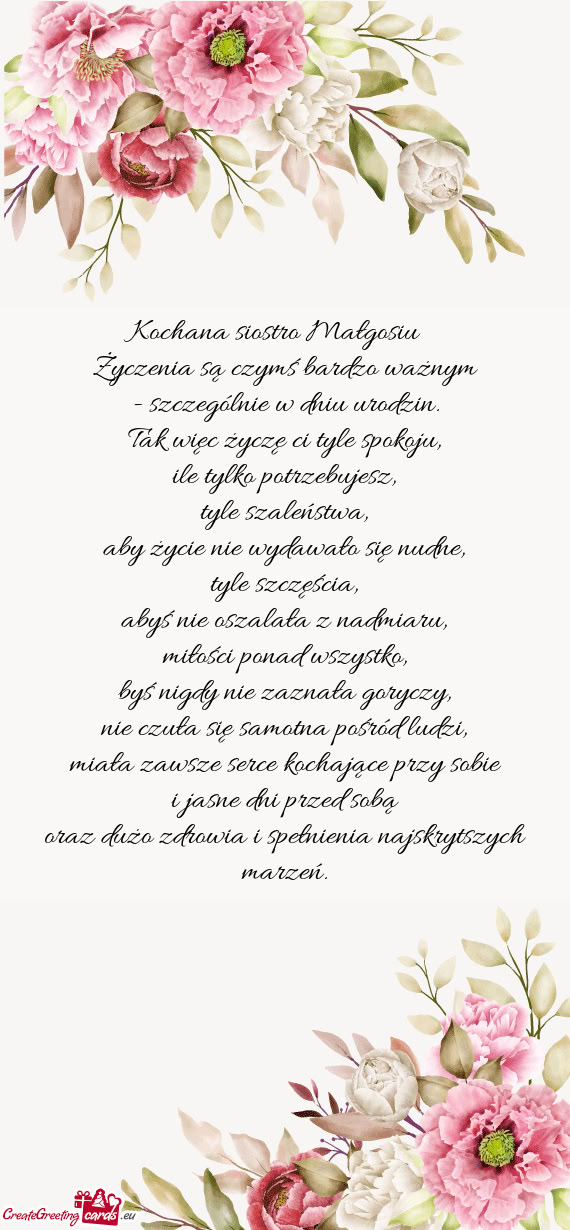 Kochana siostro Małgosiu
Życzenia są czymś bardzo ważnym
- szczególnie w dniu urodzin.
Tak więc życzę ci tyle spokoju,
ile tylko potrzebujesz,
tyle szaleństwa,
aby życie nie wydawało się nudne,
tyle szczęścia,
abyś nie oszalała z nadmiaru,
miłości ponad wszystko,
byś nigdy nie zaznała goryczy,
nie czuła się samotna pośród ludzi,
miała zawsze serce kochające przy sobie
i jasne dni przed sobą
oraz dużo zdrowia i spełnienia najskrytszych
marzeń.
CreateGreeting cards .eu